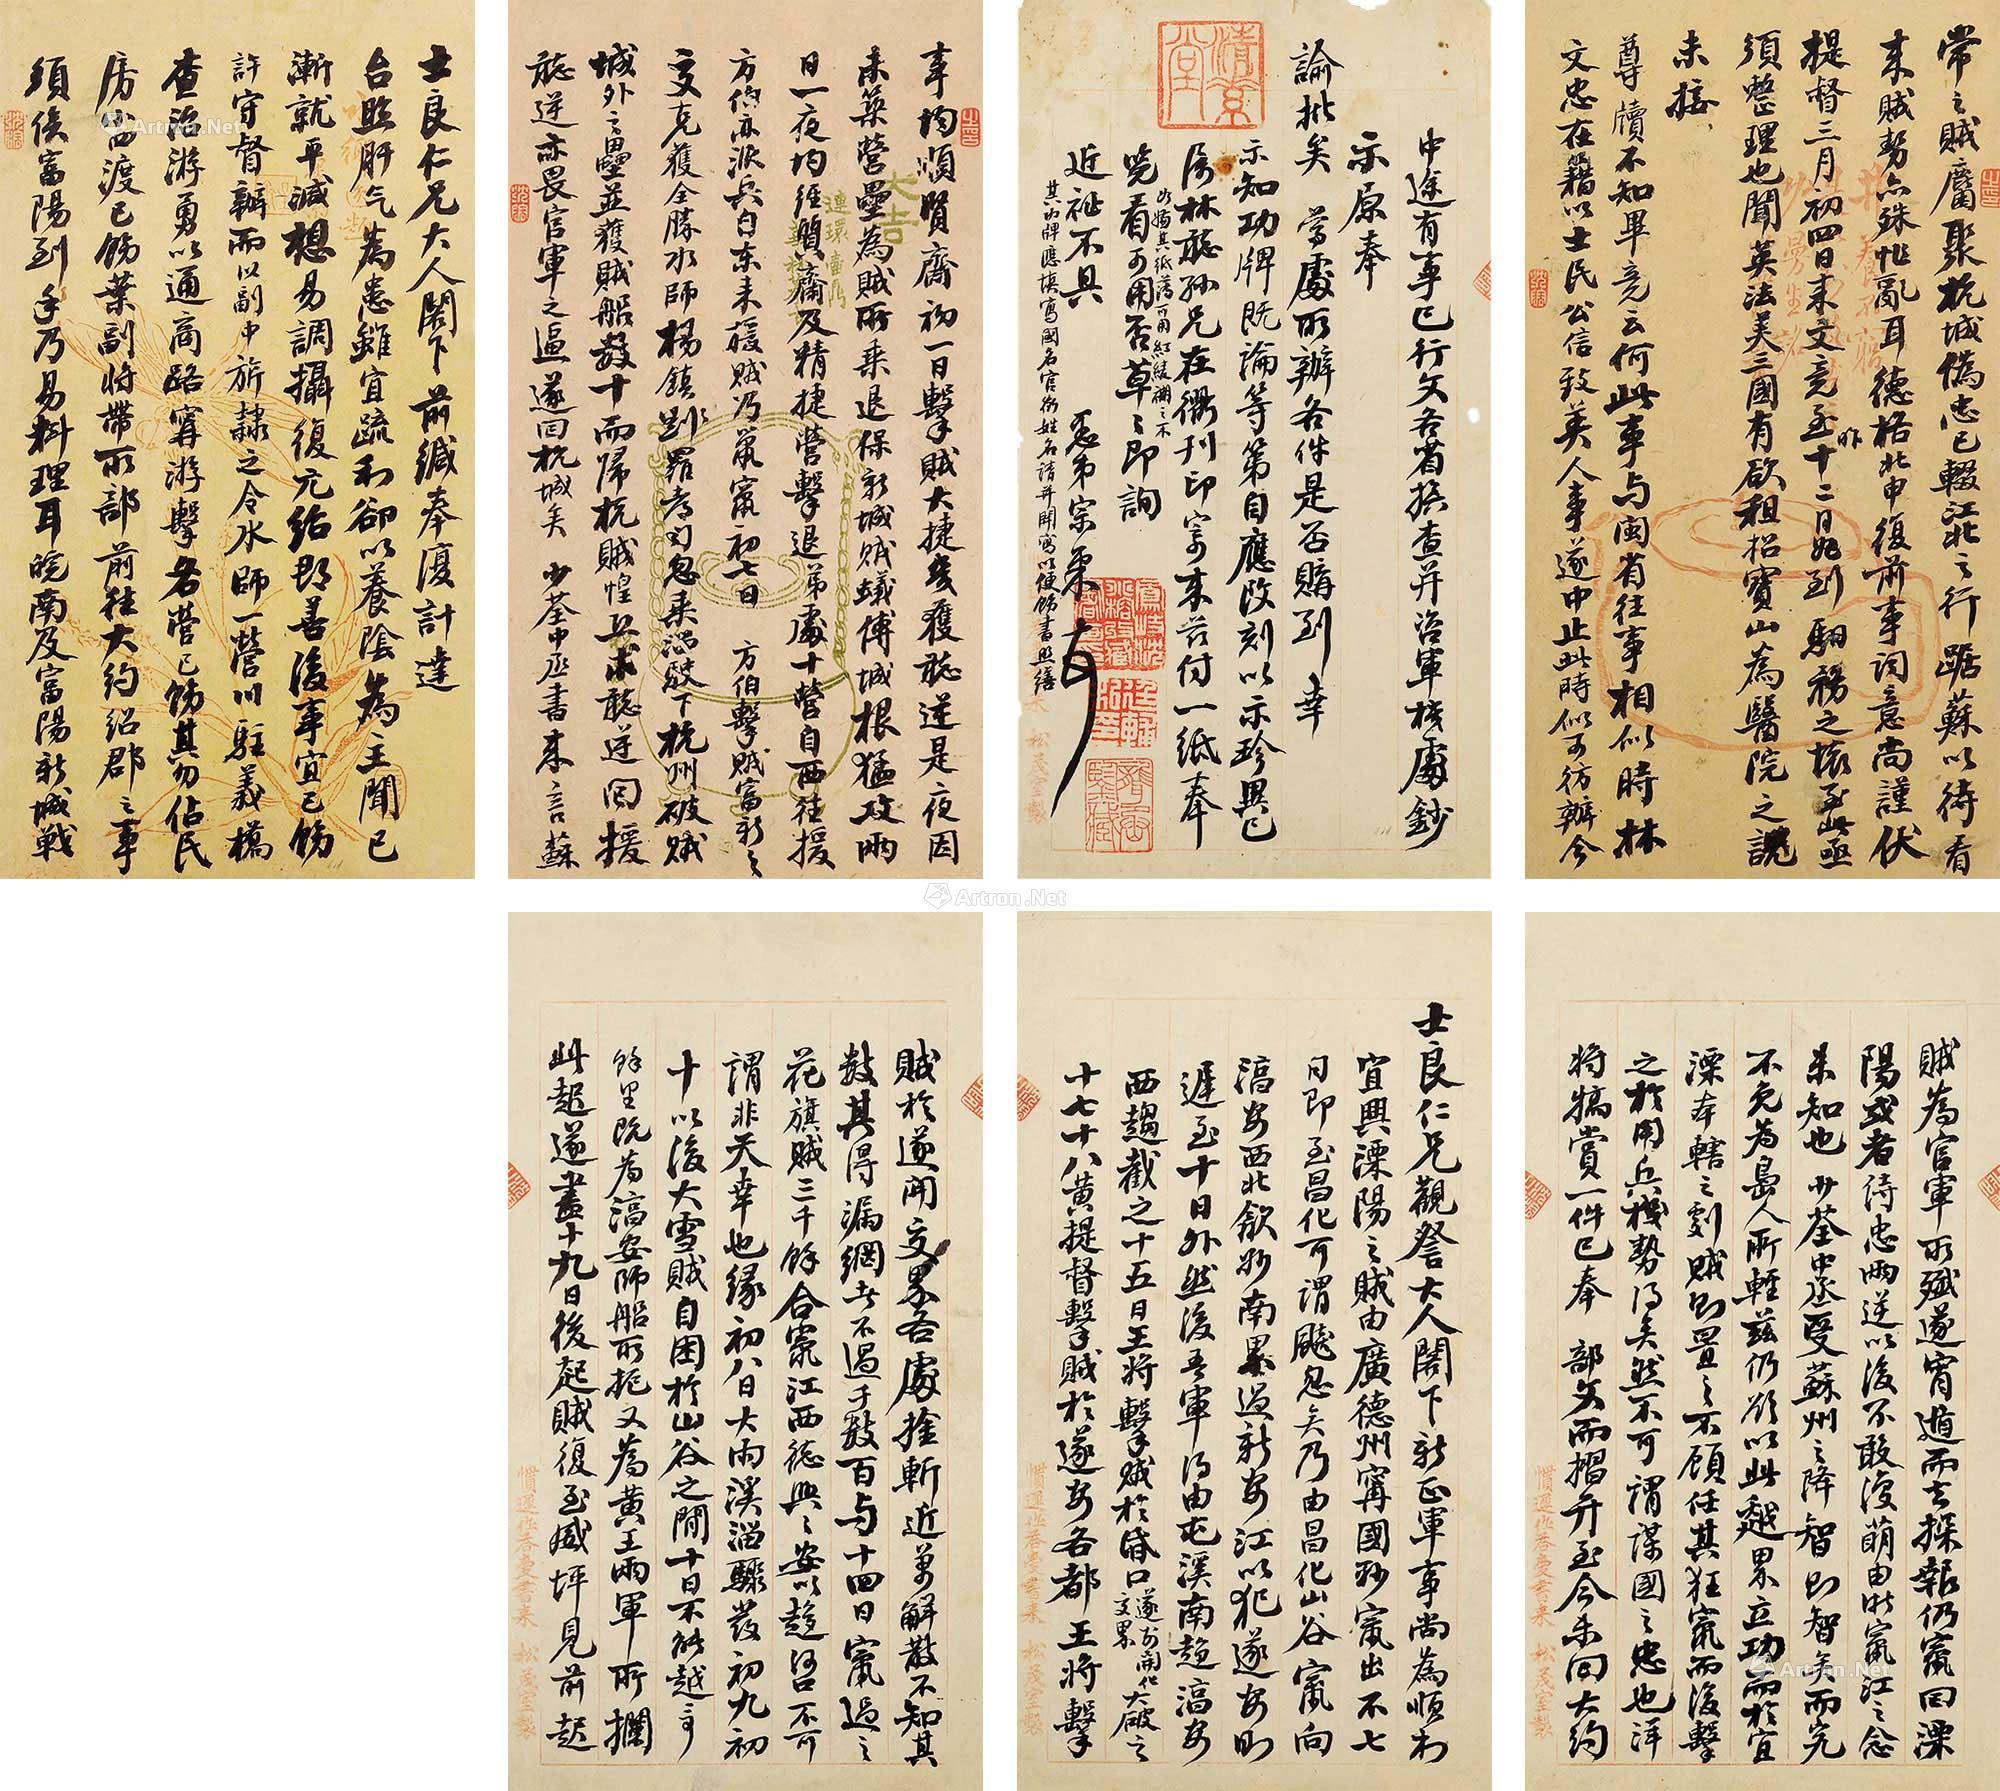 士良仁兄大人閣下前緘奉復計達
台照肝气為患雖宜疏利卻以養陰為主聞已
漸就平減想易調攝復元紹郡善後事宜已飭
許守督辦而以副中旂隸之令水師一營川駐義橋
查治游勇以通商路甯游擊各營已飭其勿佔民
房西渡已飭葉副將帶所部前往大約紹郡之事
須俟富陽到手乃易料理耳皖南及富陽新城戰
事均順質齋初一日擊賊大捷幾獲聽逆是夜因
未築營壘為賊所乘退保新城賊蟻傅城根猛攻兩
日一夜均經質齋及精捷營擊退弟處十營自西往援
方伯亦派兵自東來援賊乃宵竄初七日 方伯擊賊富新之
交克獲全勝水師楊鎮
城外之壘並獲賊船數十而歸杭賊惶恐求聽逆回援
聽逆亦畏官軍之逼遂回杭城矣 少荃中丞書來言蘇
常之賊麕聚杭城偽忠已輟江北之行踞蘇以待看
來賊勢亦殊忙亂耳德格北申復前事詞意尚謹伏
提督三月初四日來文竟至十二日昨
須整理也聞英法美三國有欲租招寶山為醫院之說
未接
尊牘不知畢竟云何此事与閩省往事相似時林
文忠在籍以士民公信致英人事遂中止此時似可仿辦今
士良仁兄親詧大人閣下新正軍事尚為順利
宜興溧陽之賊由廣德州寧國縣竄出不七
日即至昌化可謂飈忽矣乃由昌化山谷竄向
淳安西北歙縣南界過新安江以犯遂安則
遲至十日外然後吾軍得由屯溪南趨淳安
西趨截之十五日王將擊賊於昏口遂安開化交界大破之
十七十八黃提督擊賊於遂安各都王將擊
賊於遂開交界各處擒斬近萬解散不知其
數其得漏網者不過千數百与十四日竄過之
花旗賊三千餘合竄江西德興樂安以趨河口不可
謂非天幸也緣初八日大雨溪溜驟發初九初
十以後大雪賊自困於山谷之間十日不能越百
餘里既為淳安師船所扼又為黃王兩軍所攔
此起遂盡十九日後起賊復至威坪見前起
賊為官軍所殲遂宵遁而去探報仍竄回溧
陽或者侍忠兩逆以後不敢復萌由浙竄江之念
未知也少荃中丞受蘇州之降智則智矣而究
不免為島人所輕茲仍欲以此越界立功而於宜
溧本轄之劇賊則置之不顧任其狂竄而後擊
之於用兵機勢得矣然不可謂謀國之忠也洋
將犒賞一件已奉 部文而摺弁至今未回大約
中途有事已行文各省挨查并咨軍機處鈔
示原奉
諭批矣 尊處所辦各件是否購到 幸
示知功牌既論等第自應改刻以示珍異已
屬林聽孫兄在衢刊印寄來茲付一紙奉
覽看可用否草草即詢
如嫌其紙薄可用紅綾襯之
近祉不具 愚弟宗棠頓首
其功牌應填寫國名官銜姓名請并開寫以便飭書照繕
清京堂
大吉
連環
慣遲作答愛書來 松茂室製
慣遲作答愛書來 松茂室製
慣遲作答愛書來 松茂室製
松茂室製
Artron.Net
Artron.Net
Artron.Net
Artron.Net